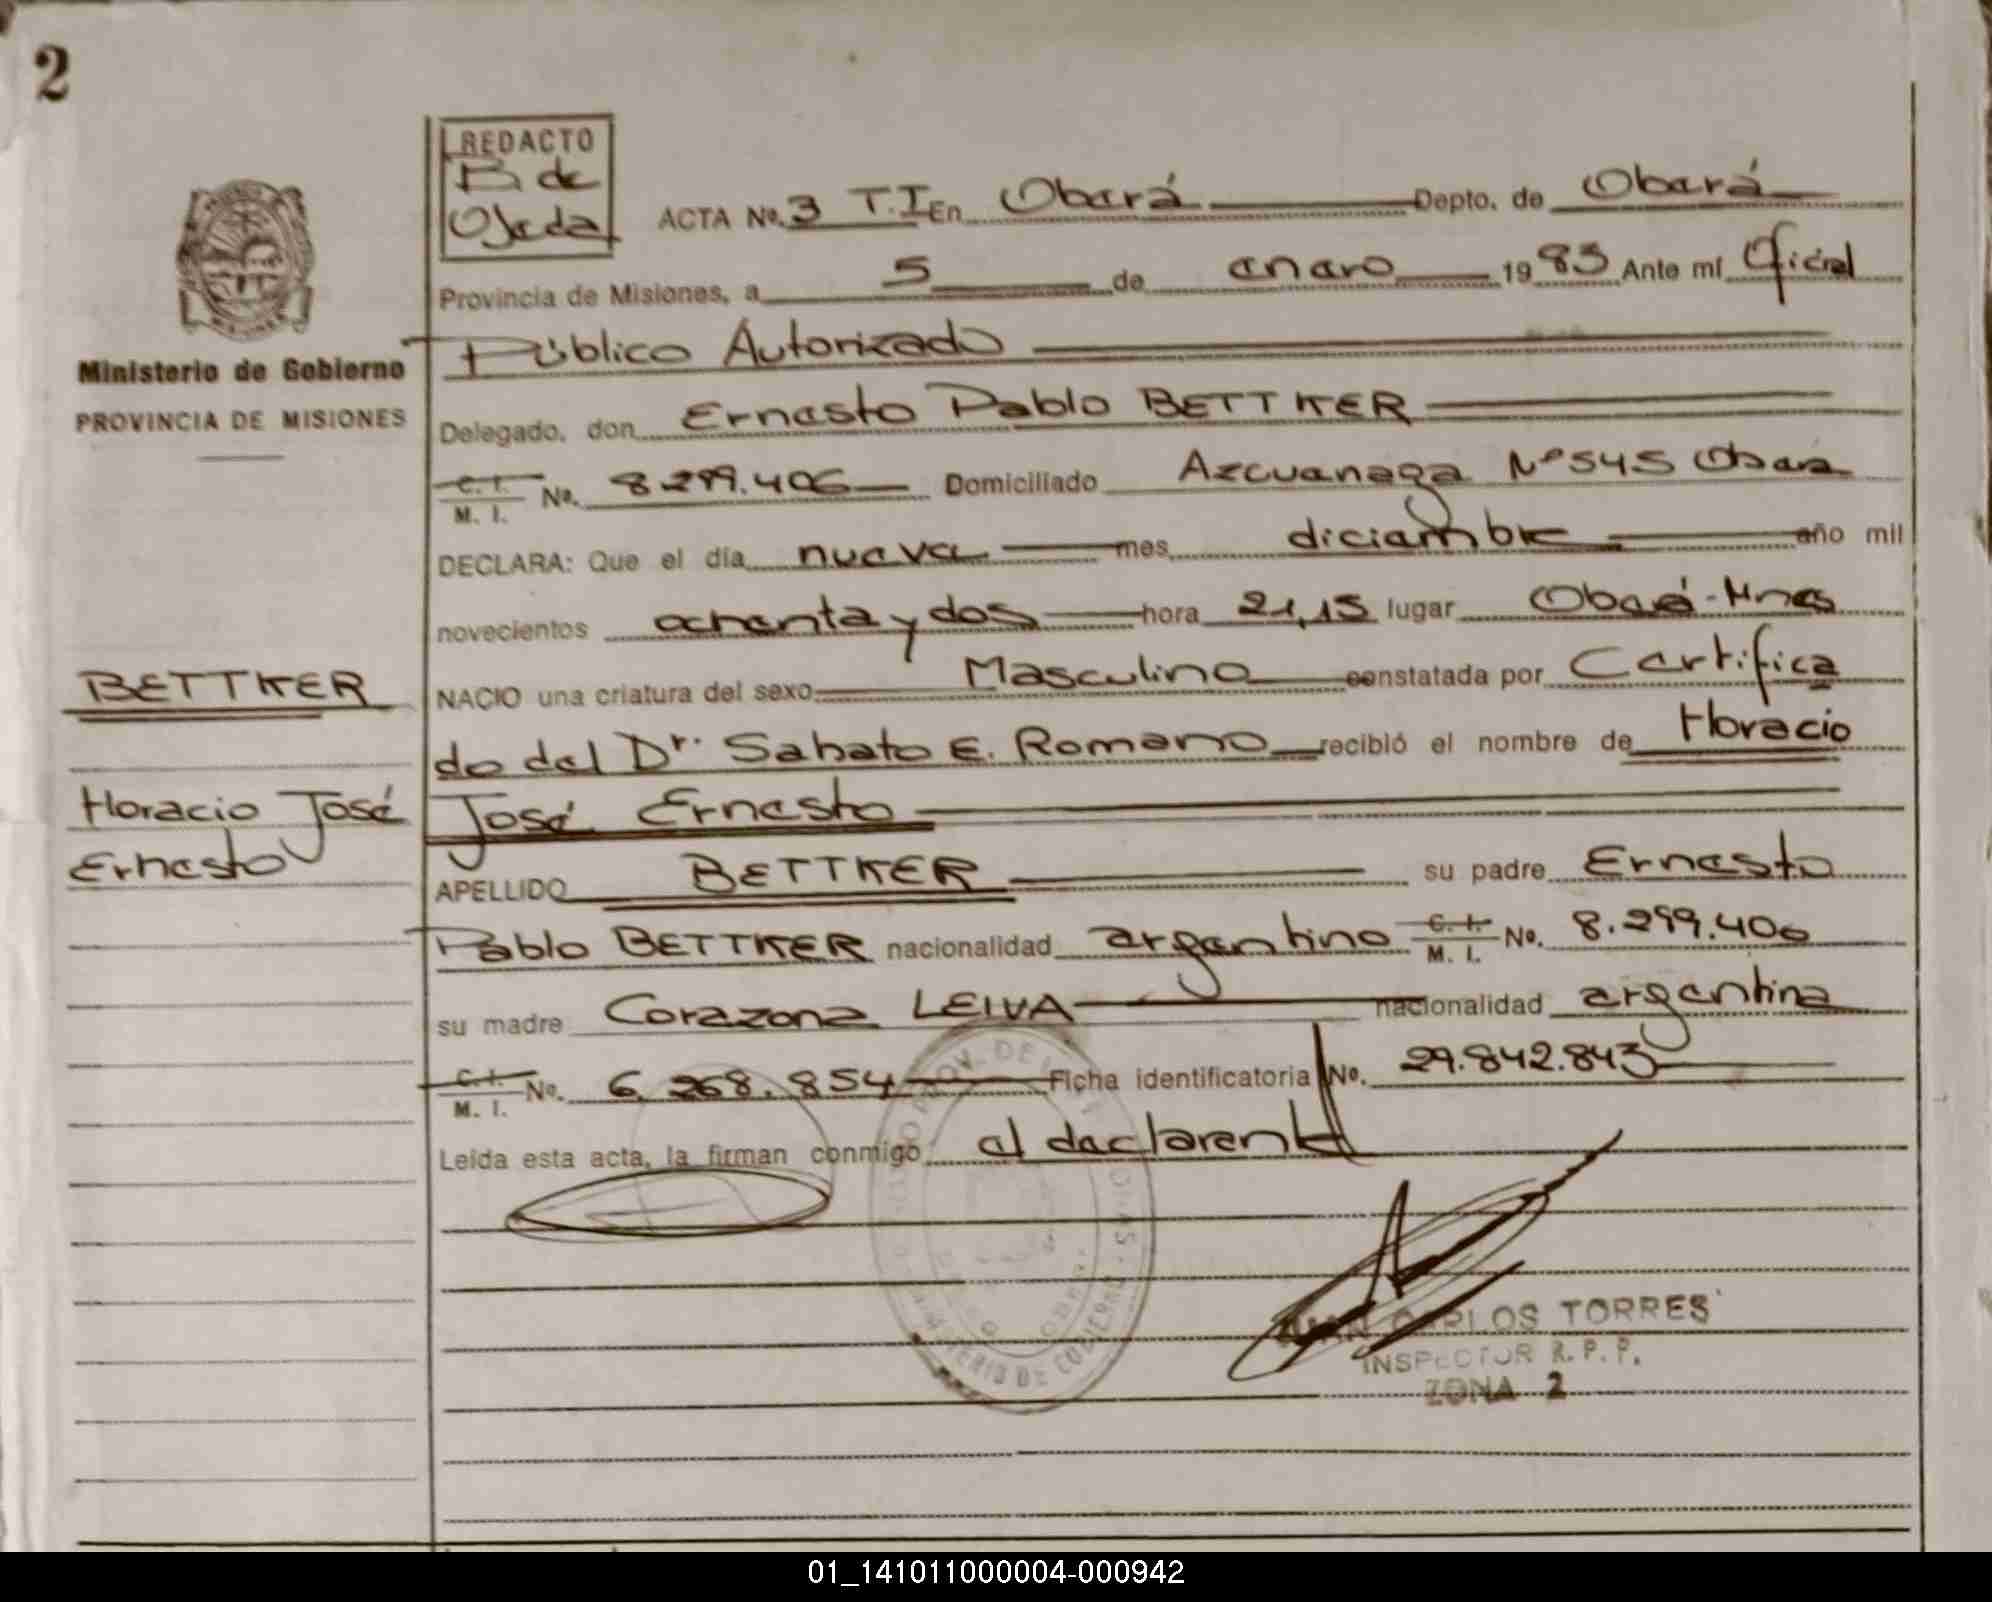 2
REDACTO
B. de
Ojeda
ACTA Nº. 3 T.I En Oberá Depto. de Oberá
Provincia de Misiones, a 5 de enero 1983 Ante mí Oficial
Público Autorizado
Ministerio de Gobierno
PROVINCIA DE MISIONES
Delegado, don Ernesto Pablo BETTKER
C. I.
M. I. No. 8.299.406 Domiciliado Azcuenaga Nº 545 Obera
DECLARA: Que el día nueve mes diciembre año mil
novecientos ochenta y dos hora 21,15 lugar Oberá-Mnes
BETTKER
NACIO una criatura del sexo Masculino constatada por Certifica
do del Dr. Sabato E. Romano recibió el nombre de Horacio
Horacio José
Ernesto
José Ernesto
APELLIDO BETTKER su padre Ernesto
Pablo BETTKER nacionalidad argentino C. I.
M. I. No. 8.299.406
su madre Corazona LEIVA nacionalidad argentina
C. I.
M. I. No. 6.268.854 Ficha identificatoria No. 29.842.843
Leída esta acta, la firman conmigo el declarente
JUAN CARLOS TORRES
INSPECTOR R. P. P.
ZONA 2
01_141011000004-000942